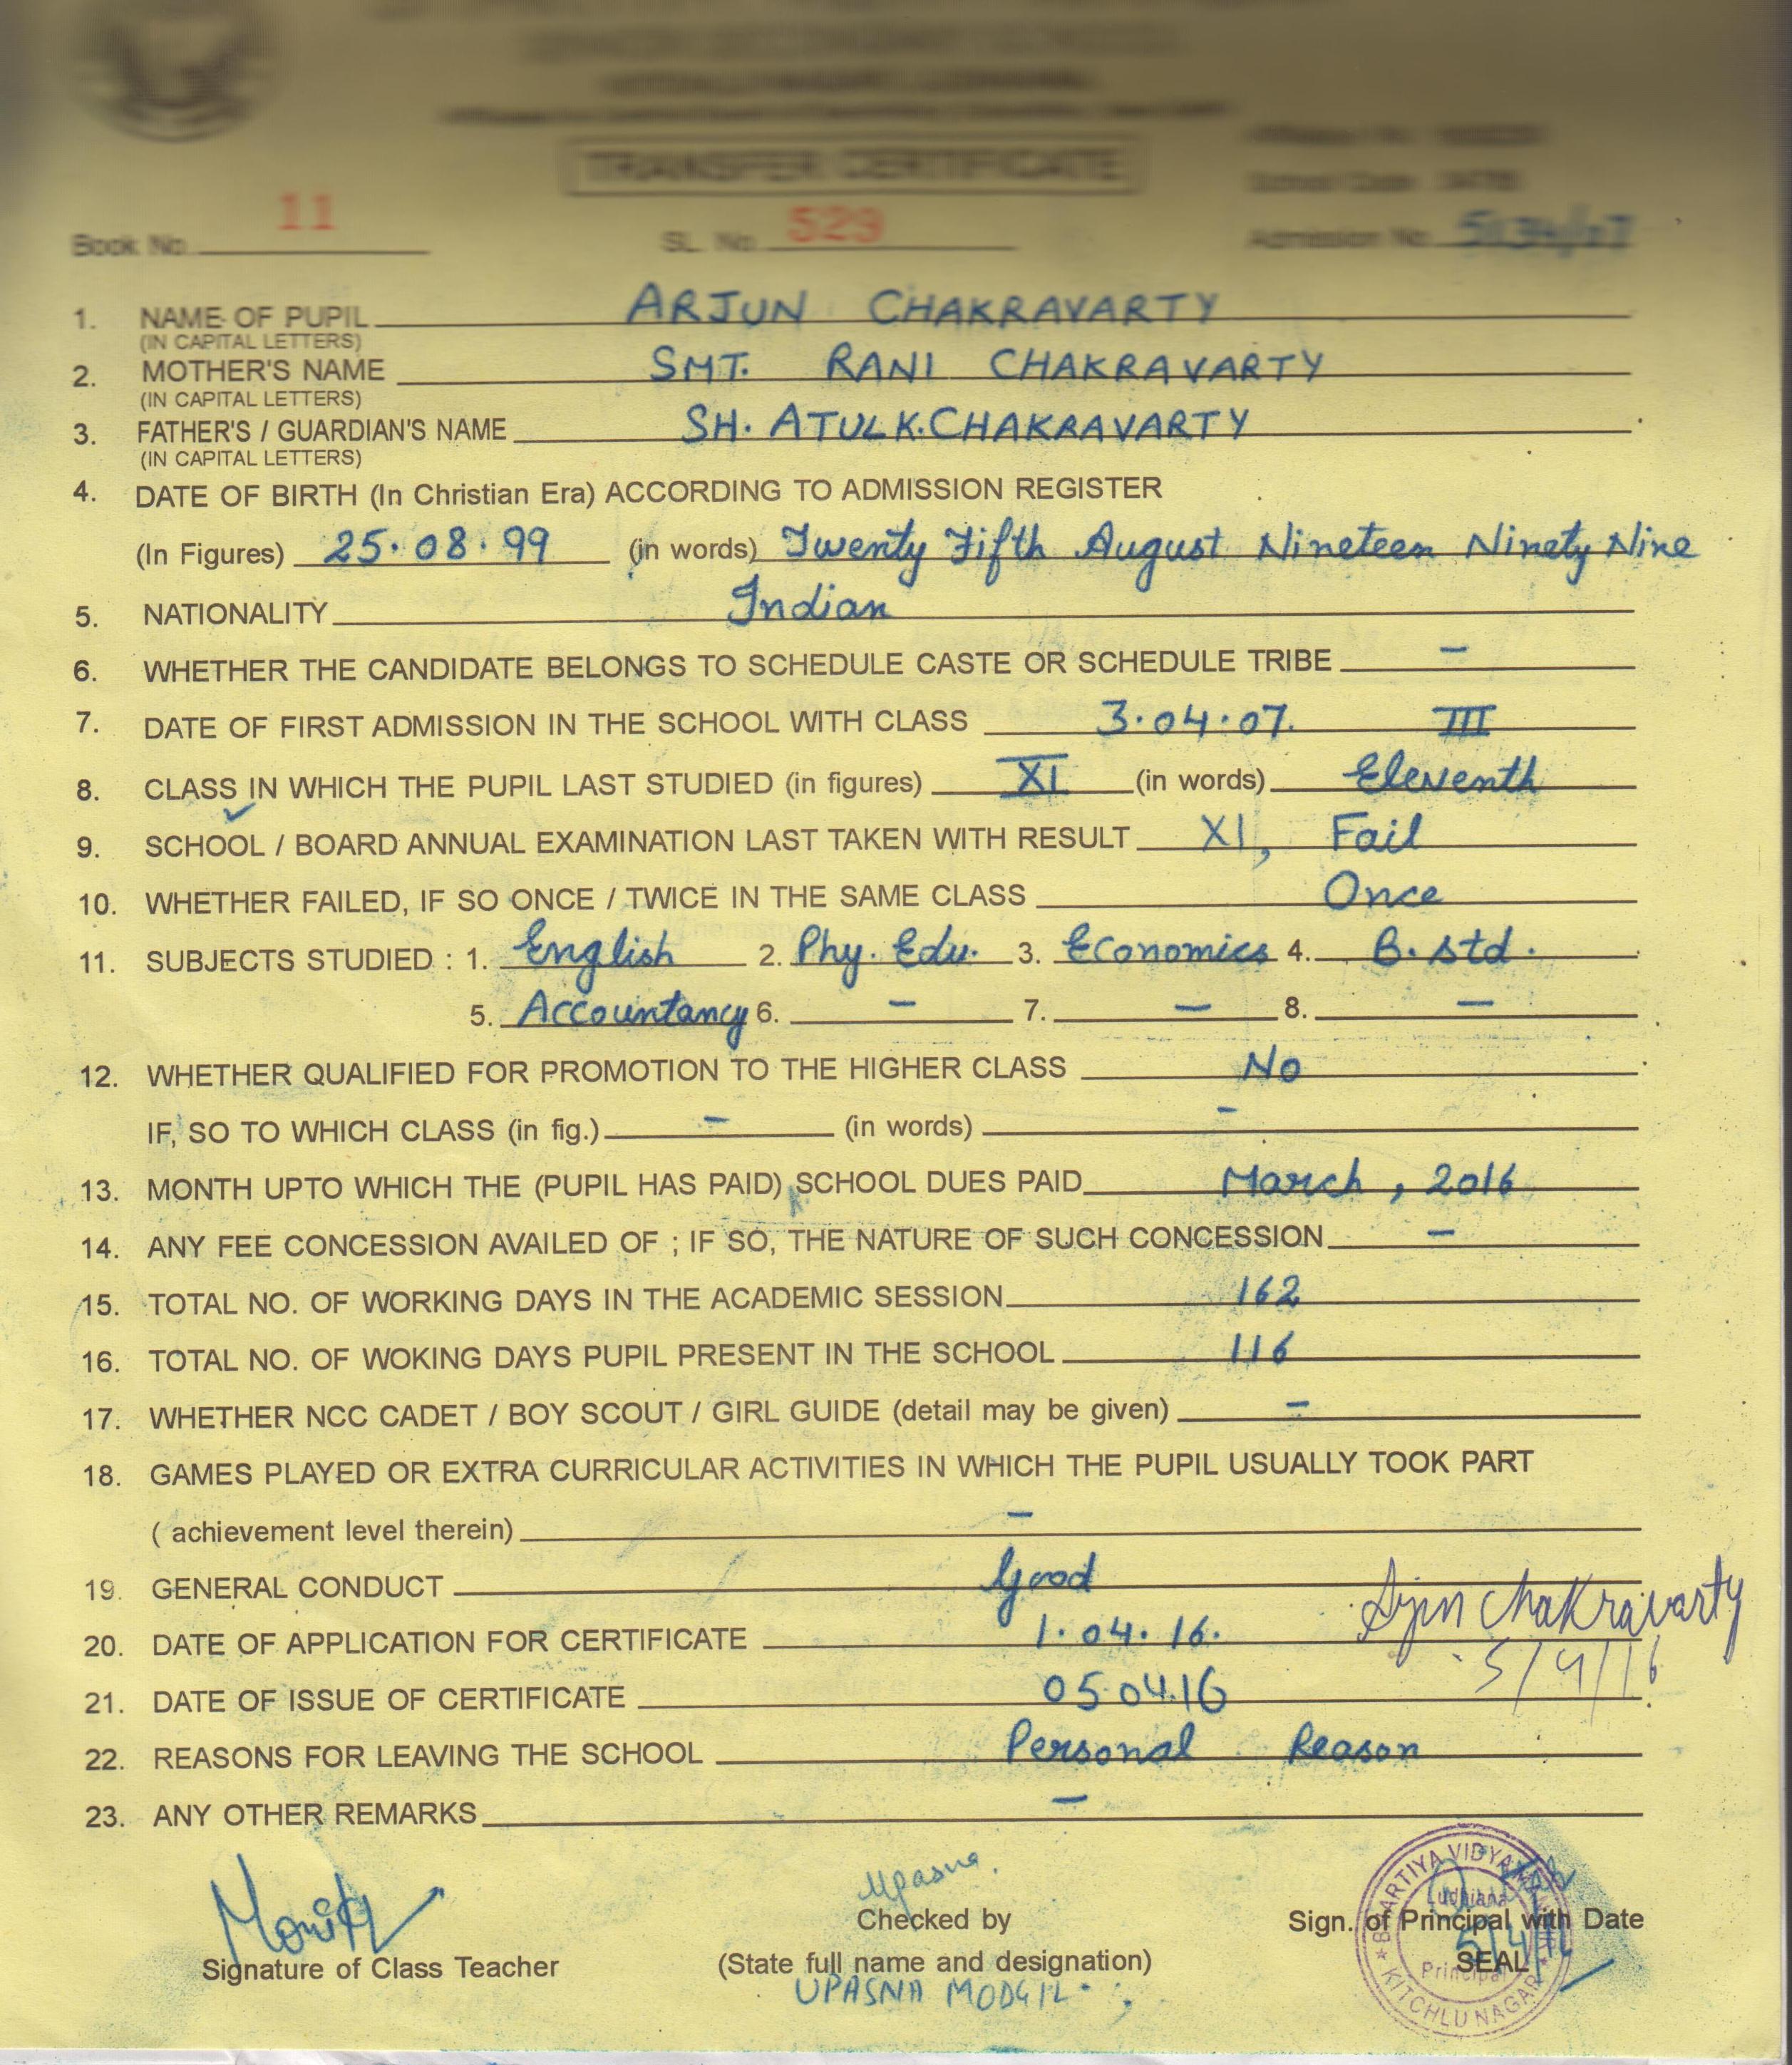 TRANSFER CERTIFICATE
Book No. 11 SL. No. 529 Admission No.
1. NAME OF PUPIL ARJUN CHAKRAVARTY
(IN CAPITAL LETTERS)
2. MOTHER'S NAME SMT. RANI CHAKRAVARTY
(IN CAPITAL LETTERS)
3. FATHER'S / GUARDIAN'S NAME SH. ATUL K. CHAKRAVARTY
(IN CAPITAL LETTERS)
4. DATE OF BIRTH (In Christian Era) ACCORDING TO ADMISSION REGISTER
(In Figures) 25.08.99 (in words) Twenty Fifth August Nineteen Ninety Nine
5. NATIONALITY Indian
6. WHETHER THE CANDIDATE BELONGS TO SCHEDULE CASTE OR SCHEDULE TRIBE –
7. DATE OF FIRST ADMISSION IN THE SCHOOL WITH CLASS 3.04.07. III
8. CLASS IN WHICH THE PUPIL LAST STUDIED (in figures) XI (in words) Eleventh
9. SCHOOL / BOARD ANNUAL EXAMINATION LAST TAKEN WITH RESULT XI, Fail
10. WHETHER FAILED, IF SO ONCE / TWICE IN THE SAME CLASS Once
11. SUBJECTS STUDIED : 1. English 2. Phy. Edu. 3. Economics 4. B. std.
5. Accountancy 6. – 7. – 8. –
12. WHETHER QUALIFIED FOR PROMOTION TO THE HIGHER CLASS No
IF, SO TO WHICH CLASS (in fig.) – (in words) –
13. MONTH UPTO WHICH THE (PUPIL HAS PAID) SCHOOL DUES PAID March, 2016
14. ANY FEE CONCESSION AVAILED OF ; IF SO, THE NATURE OF SUCH CONCESSION –
15. TOTAL NO. OF WORKING DAYS IN THE ACADEMIC SESSION 162
16. TOTAL NO. OF WOKING DAYS PUPIL PRESENT IN THE SCHOOL 116
17. WHETHER NCC CADET / BOY SCOUT / GIRL GUIDE (detail may be given) –
18. GAMES PLAYED OR EXTRA CURRICULAR ACTIVITIES IN WHICH THE PUPIL USUALLY TOOK PART
( achievement level therein) –
19. GENERAL CONDUCT Good
Arjun Chakravarty
20. DATE OF APPLICATION FOR CERTIFICATE 1.04.16.
5/4/16
21. DATE OF ISSUE OF CERTIFICATE 05.04.16
22. REASONS FOR LEAVING THE SCHOOL Personal Reason
23. ANY OTHER REMARKS –
Upasna.
Checked by
Sign. of Principal with Date
Signature of Class Teacher
(State full name and designation)
SEAL
UPASNA MODGIL
BARTIYA VIDYA MANDIR
Ludhiana
5/4/16
Principal
KITCHLU NAGAR